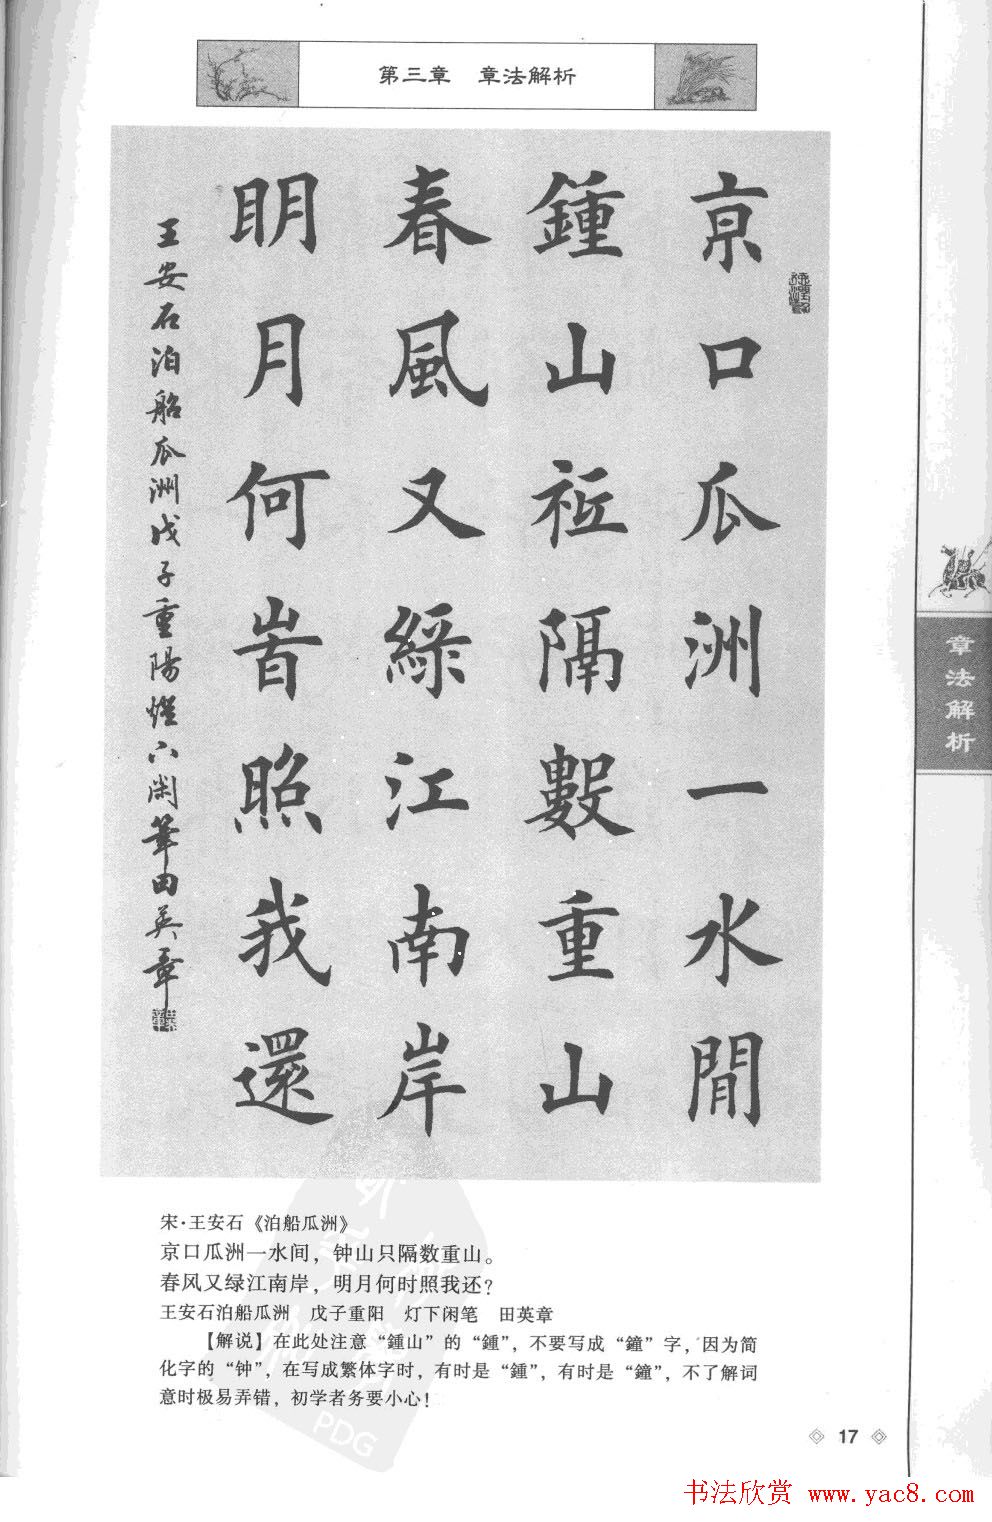 第三章　章法解析
亰口瓜洲一水間
鍾山祗隔數重山
春風又綠江南岸
明月何旹照我還
王安石泊船瓜洲戊子重陽燈下閑筆田英章
章法解析
宋·王安石《泊船瓜洲》
京口瓜洲一水间，钟山只隔数重山。
春风又绿江南岸，明月何时照我还？
王安石泊船瓜洲　戊子重阳　灯下闲笔　田英章
【解说】在此处注意“鍾山”的“鍾”，不要写成“鐘”字，因为简
化字的“钟”，在写成繁体字时，有时是“鍾”，有时是“鐘”，不了解词
意时极易弄错，初学者务要小心！
PDG
17
书法欣赏 www.yac8.com